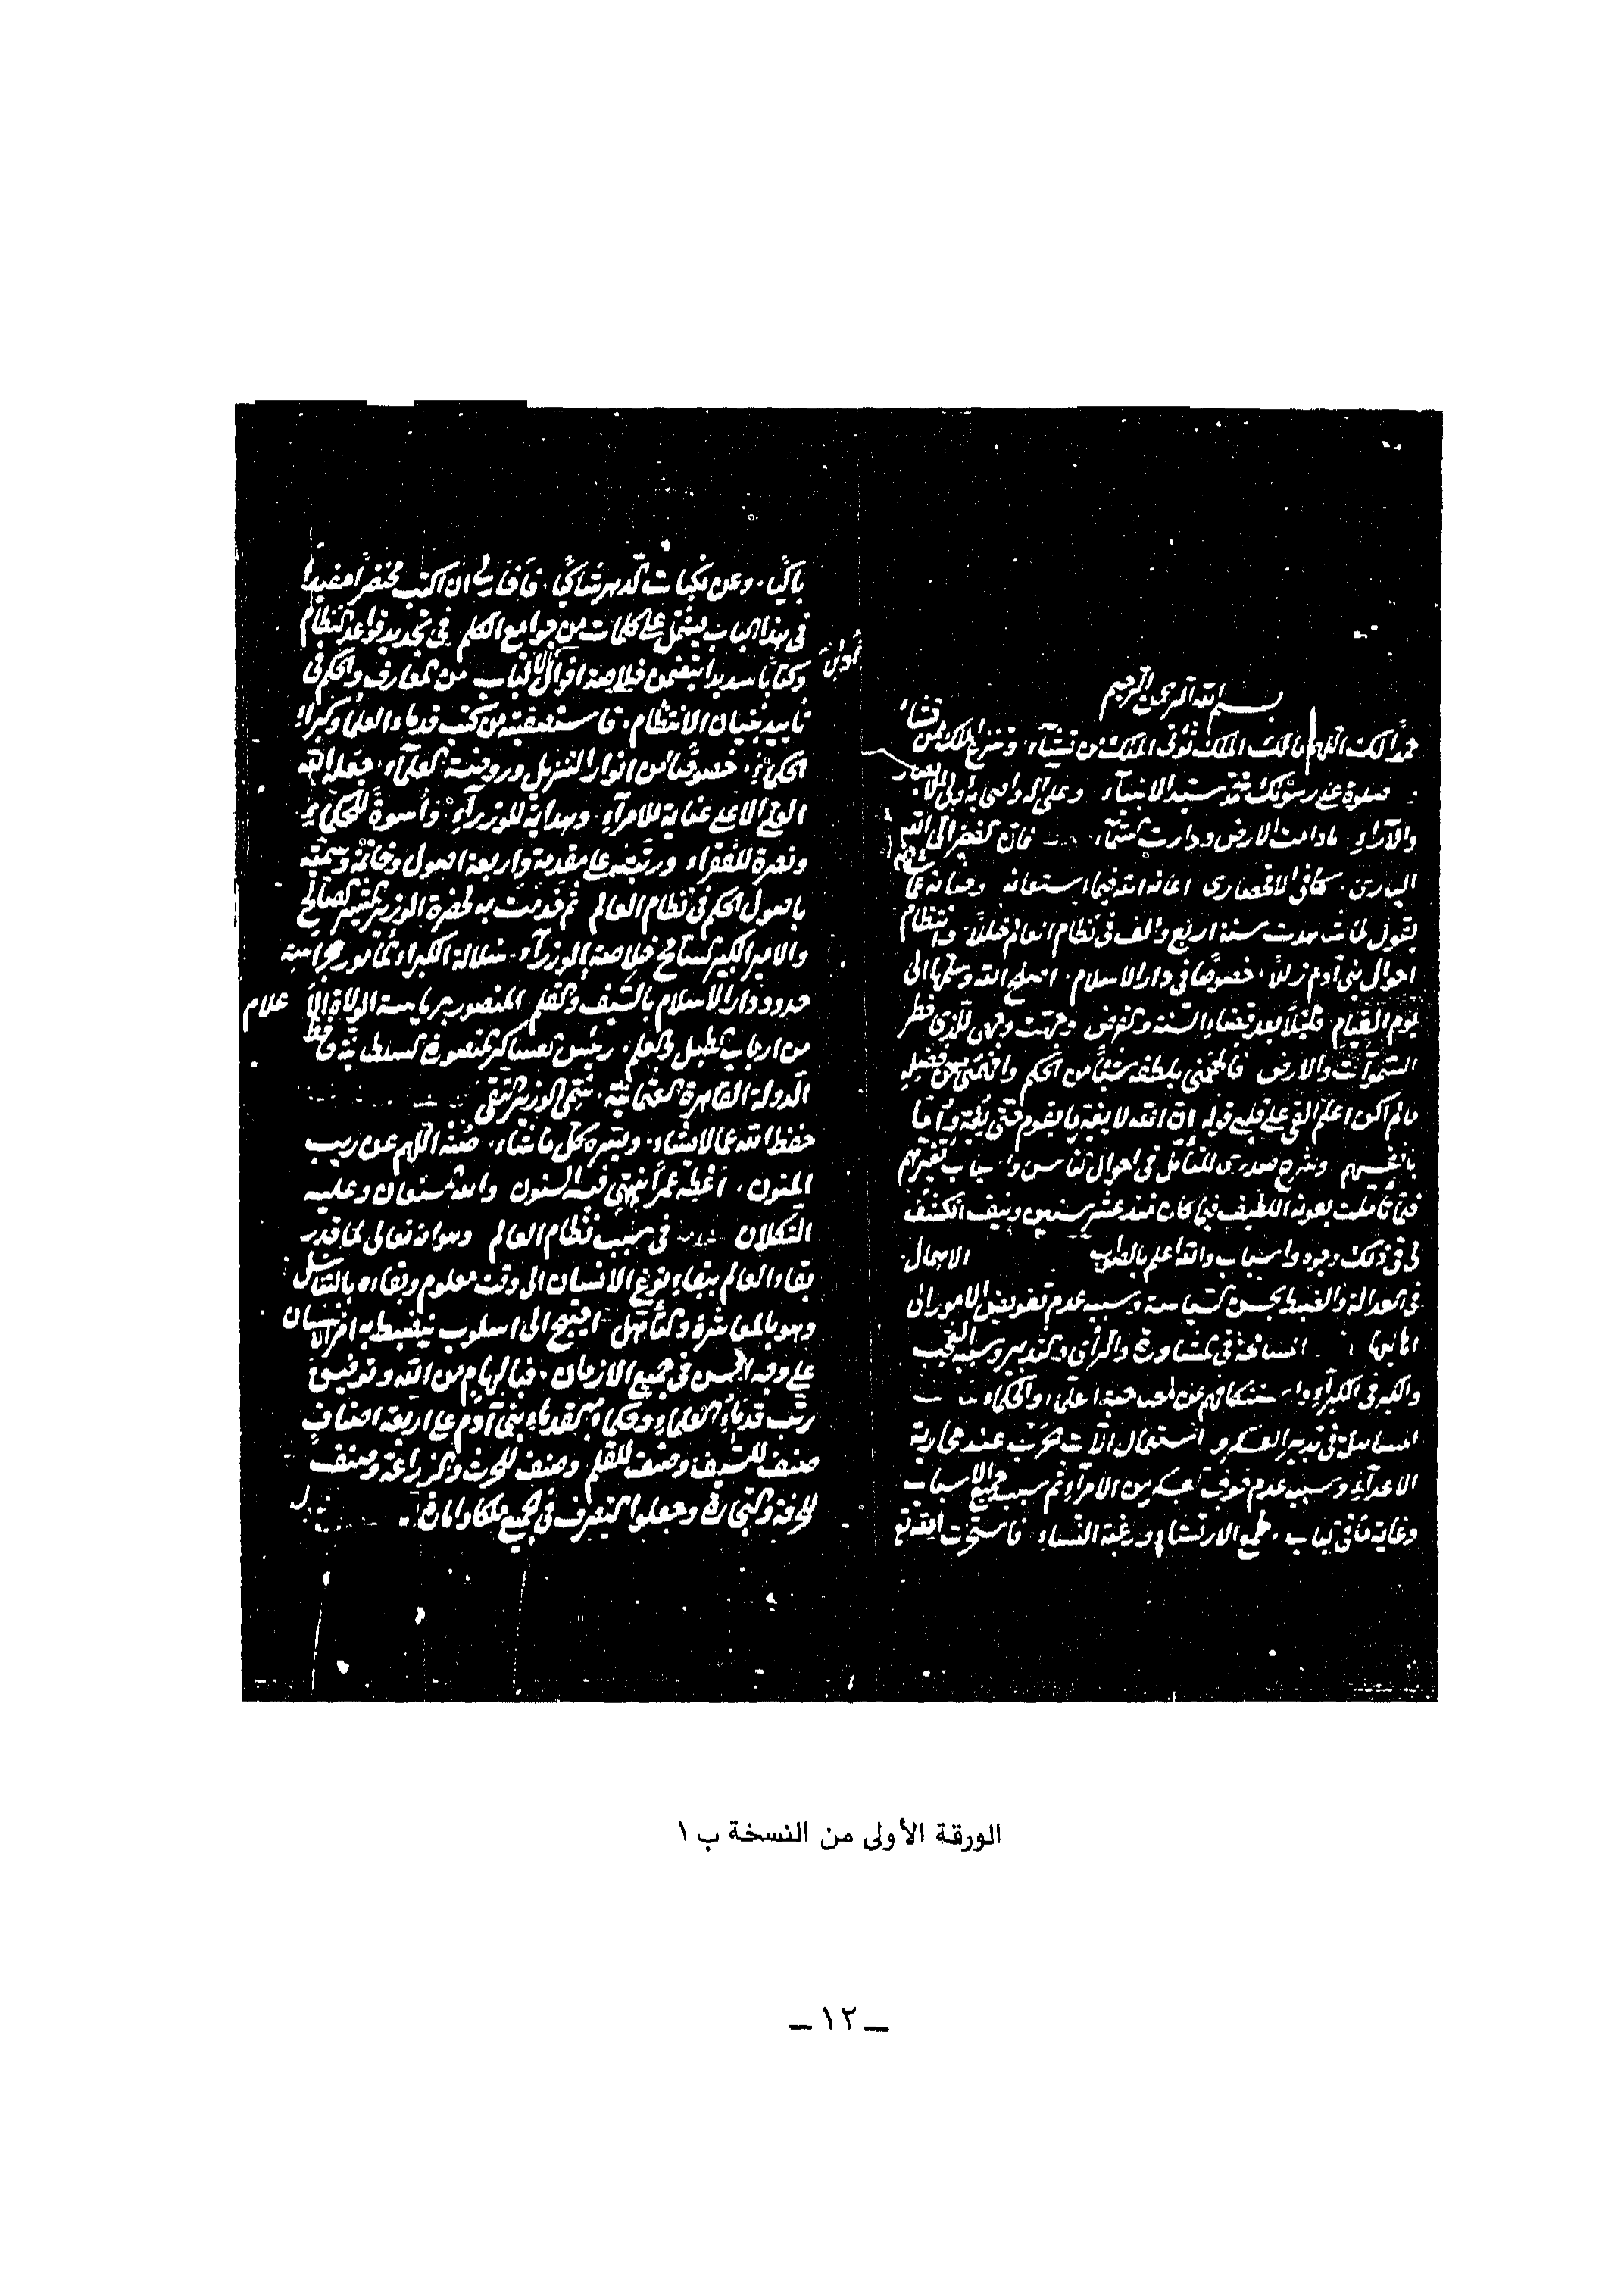 بسم الله الرحمن الرحيم
حمدا لك اللهم مالك الملك تؤتى الملك من تشآء وتنزع الملك ممن تشاء
صلوة على رسولك محمد سيد الانبيآء وعلى اله واصحابه اولى الاعتبار
والآراء مادامت الارض ودارت السمآء فان الفقير الى الله
البارى كافى الاقحصارى اعانه الله فيما استعانه وصانه عما شانه
يقول لما شاهدت سنة اربع والف فى نظام العالم خللا وانتظام
احوال بنى آدم زللا خصوصا فى دار الاسلام اصلح الله وسلمها الى
يوم القيام فليلا بعد قضاء السنة والفرض وجهت وجهى للذى فطر
السموات والارض فالهمنى بلطفه شيئا من الحكم وافهمنى من فضله
مالم اكن اعلم القى على قلبى قوله ان الله لا يغير ما بقوم حتى يغيروا ما
بانفسهم وشرح صدرى للتأمل فى احوال الناس واسباب تغيرهم
فتأملت بعونه اللطيف فيما كان منذ عشر سنين ونيف انكشف
لى فى ذلك وجوه واسباب والله اعلم بالصواب الاهمال
فى العدالة والضبط بحسن السياسة وسببه عدم تفويض الامور الى
اهاليها المسامحة فى المشاورة والرأى والتدبير وسببه العجب
والكبر فى الكبرآء واستنكافهم عن مصاحبة العلماء والحكماء
المساهلة فى تدبير العسكر واستعمال آلات الحرب عند محاربة
الاعدآء وسببه عدم خوف العسكر من الامرآء ثم سبب جميع الاسباب
وغاية ما فى الباب طمع الارتشاء ورغبة النساء فاستخرت الله
باكيا وعن نكبات الدهر شاكيا فافاد لى ان اكتب مختصرا مفيدا
فى هذا الباب يشتمل على كلمات من جوامع الكلم فى تجديد قواعد النظام
وكتابا سديدا يتضمن خلاصة اقوال اولى الالباب من المعارف والحكم فى
تأييد بنيان الانتظام فاستصفيته من كتب قدماء العلماء وكبراء
الحكماء خصوصا من انوار التنزيل وروضة العلمآء جعله الله
العلى الاعلى عناية للامرآء وهداية للوزرآء واسوة للحكماء
ونصرة للفقراء ورتبته على مقدمة واربعة اصول وخاتمة وسميته
باصول الحكم فى نظام العالم ثم قدمت به لحضرة الوزير المشير الصالح
والامير الكبير خلاصة الوزرآء سلالة الكبراء المأمور بحراسة
حدود دار الاسلام بالسيف والقلم المنصور برياسة الولاة الاعلام
من ارباب الطبل والعلم رئيس العساكر المنصورة السلطانية حافظ
الدولة القاهرة العثمانية سمى الوزير التقى
حفظه الله عما لا يشاء ويسره كل ما شاء صنه اللهم عن ريب
المنون اعطه عمرا ينتهى فيه السنون والله المستعان وعليه
التكلان فى سبب نظام العالم وهو انه تعالى لما قدر
بقاء العالم ببقاء نوع الانسان الى وقت معلوم وبقاءه بالتناسل
وهو بالمعاشرة والتأهل احتيج الى اسلوب ينضبط به امر الانسان
على وجه الحسن فى جميع الازمان فبالهام من الله وتوفيق
رتب قدماء العلماء وحكماء القدماء بنى آدم على اربعة اصناف
صنف للسيف وصنف للقلم وصنف للحرث والزراعة وصنف
للحرفة والتجارة وجعلوا التصرف فى الجميع ملكا
الورقة الأولى من النسخة ب ١
ـ ١٢ ـ